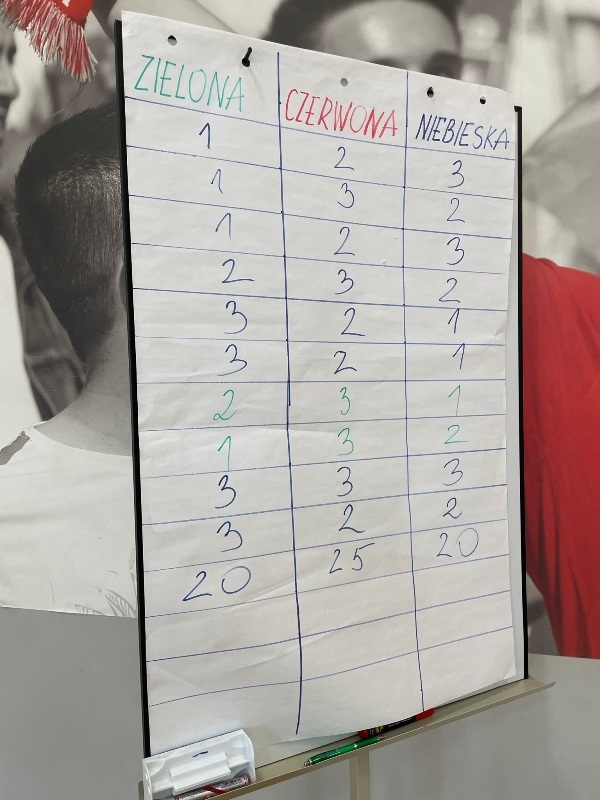 ZIELONA CZERWONA NIEBIESKA
1 2 3
1 3 2
1 2 3
2 3 2
3 2 1
3 2 1
2 3 1
1 3 2
3 3 3
3 2 2
20 25 20